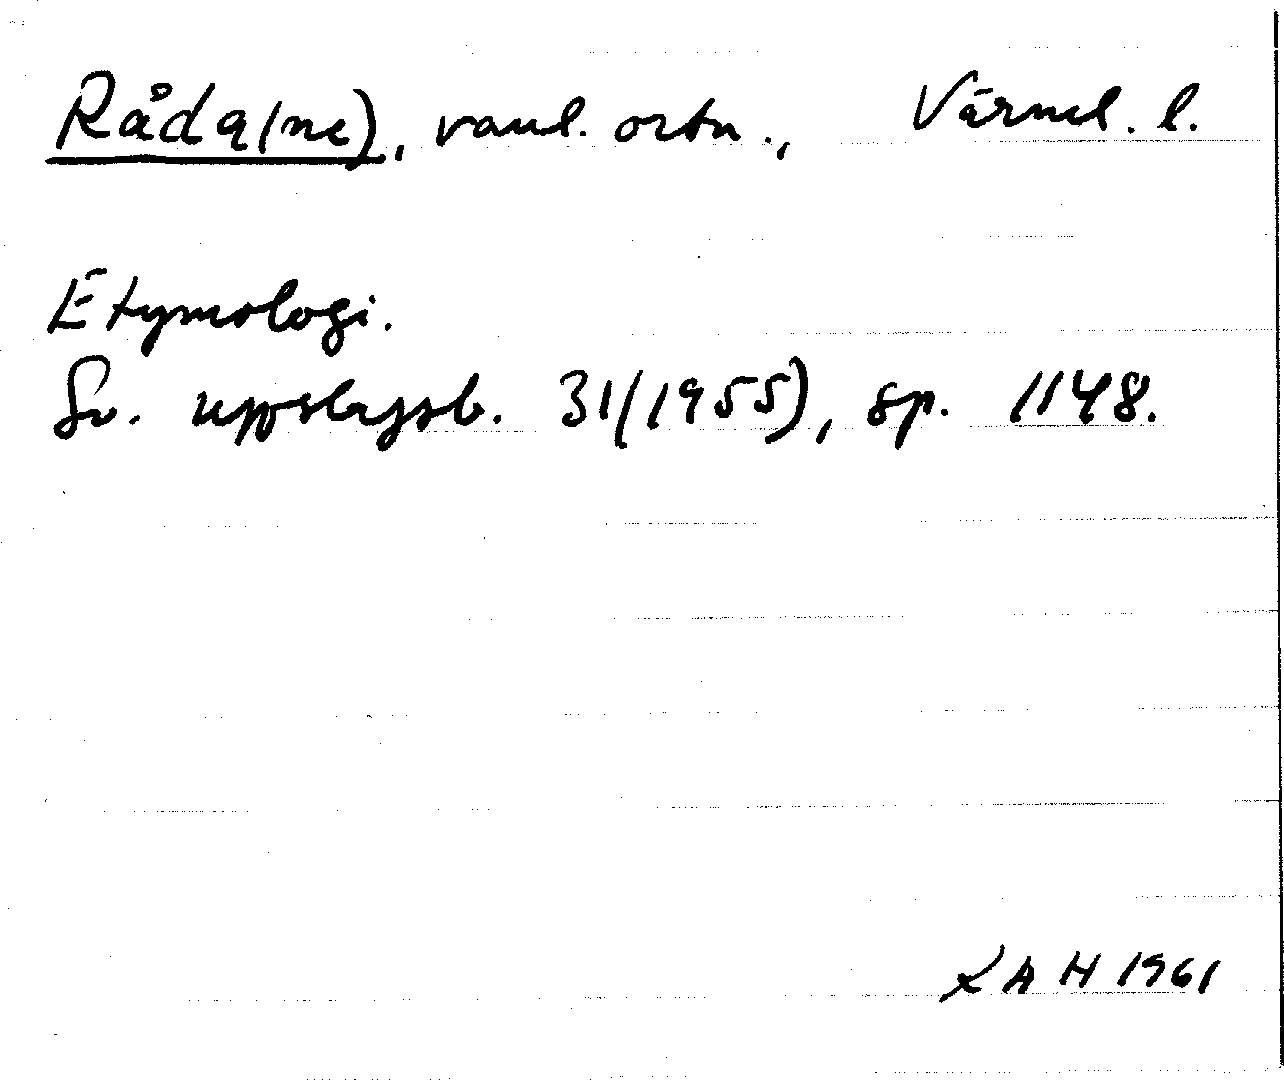 Råda(ne), vanl. ortn., Värml. l.
Etymologi.
Sv. uppslagsb. 31(1955), sp. 1148.
AH 1961